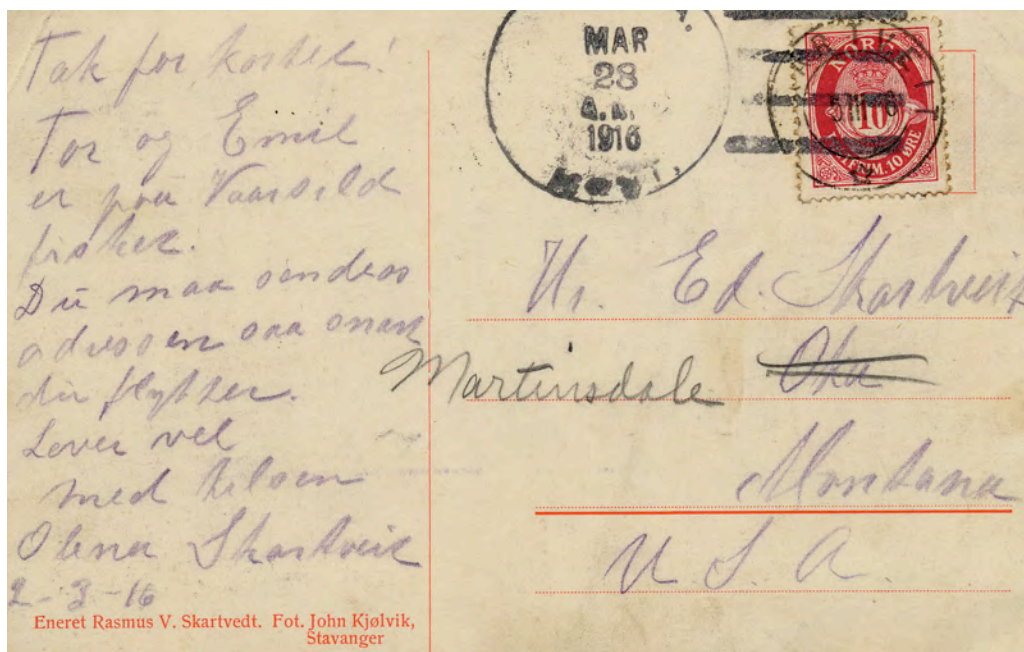 Tak for kortet!
Tor og Emil
er paa Vaarsild
fisket.
Du maa sende os
adressen saa snart
du flytter.
Lever vel
med hilsen
Olena Skartveit
2-3-16
Eneret Rasmus V. Skartvedt. Fot. John Kjølvik,
Stavanger
MAR
28
A.M.
1916
MONT.
NORGE
10
FRIM. 10 ØRE
5 III 16
Hr. Ed. Skartveit
Martinsdale Oka
Montana
U. S. A.